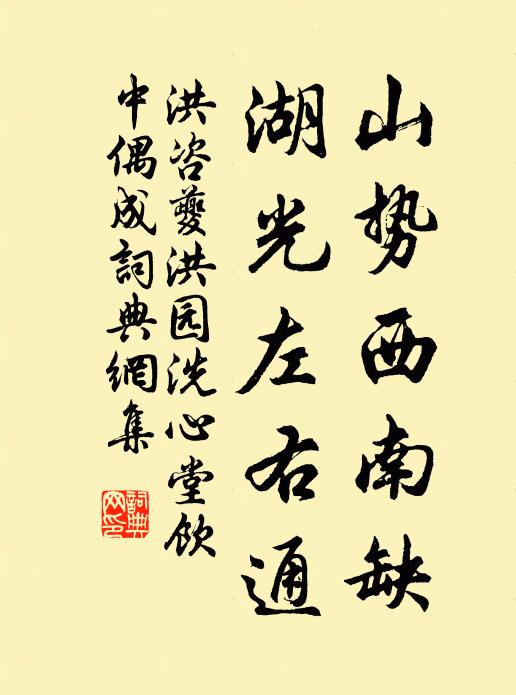 山势西南缺
湖光左右通
洪咨夔洪园洗心堂饮
中偶成詞典網集
詞典网印